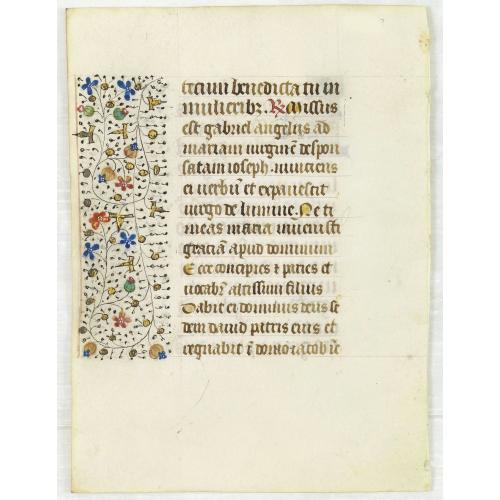 tecum benedicta tu in
mulieribꝫ. R Missus
est gabriel angelus ad
mariam virginē despon
satam ioseph. nuncians
ei verbū et expauescit
virgo de lumine. Ne ti
meas maria inuenisti
graciā apud dominum
Ecce concipies & paries et
vocabꝰ altissimi filius
Dabit ei dominus deus se
dem dauid patris eius et
regnabit ī domo iacob in